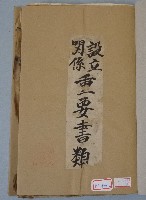 設立
関係
重要書類